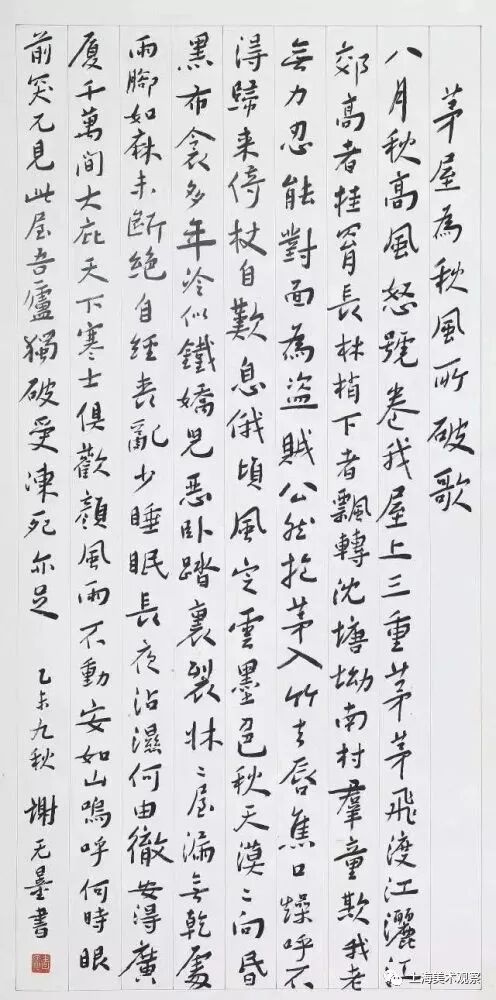 茅屋為秋風所破歌
八月秋高風怒號卷我屋上三重茅茅飛渡江灑江
郊高者挂罥長林梢下者飄轉沈塘坳南村羣童欺我老
無力忍能對面為盜賊公然抱茅入竹去唇焦口燥呼不
得歸来倚杖自歎息俄頃風定雲墨色秋天漠〻向昏
黑布衾多年冷似鐵嬌兒惡卧踏裏裂牀〻屋漏無乾處
雨腳如麻未斷絕自經喪亂少睡眠長夜沾濕何由徹安得廣
厦千萬间大庇天下寒士俱歡顏風雨不動安如山嗚呼何時眼
前突兀見此屋吾廬獨破受凍死亦足 乙未九秋 謝无墨書
上海美术观察